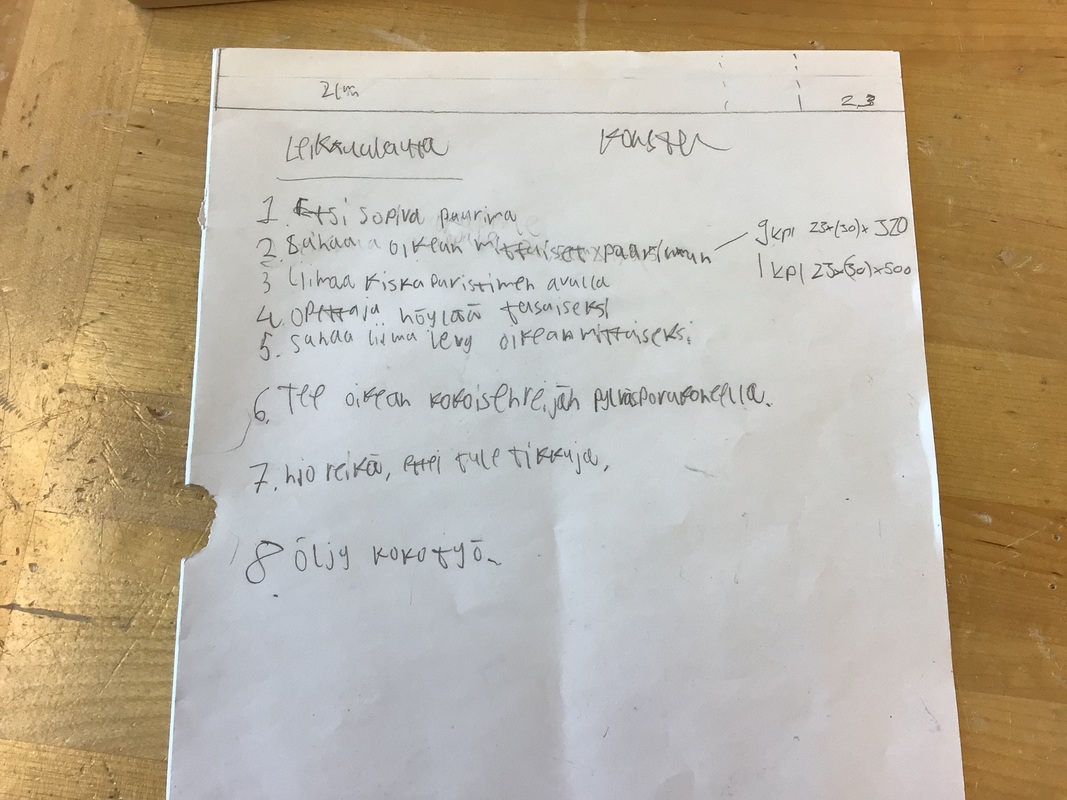 2,3
Leikkuulauta
1. Etsi sopiva puurima
2 Sahaa oikean mittaiset
9 kpl 23x(30)x 320
1 kpl 23x(30)x500
3 Liimaa kiskapuristimen avulla
4. Opettaja höylää tasaiseksi
5. Sahaa liima levy oikean mittaiseksi
6. Tee oikean kokoisen reijän pylväsporakoneella.
7. hio reikä, ettei tule tikkuja,
8. Öljy koko työ.